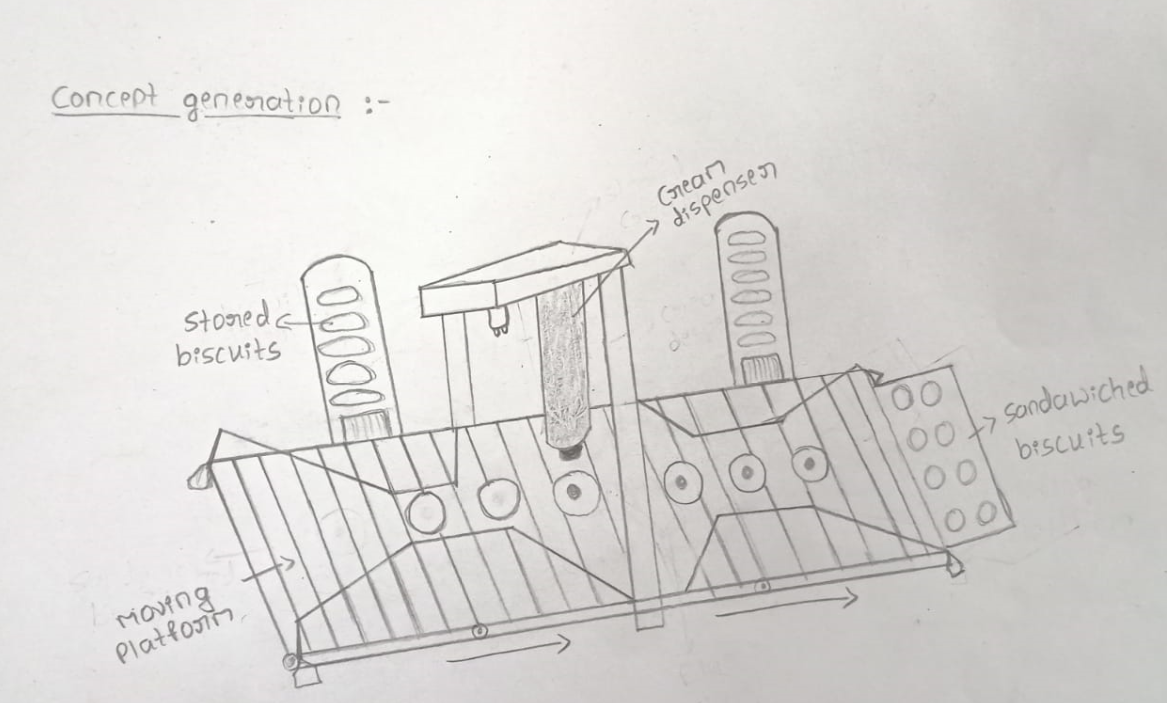 Concept generation :-
Cream
dispenser
stored
biscuits
sandawiched
biscuits
Moving
platform